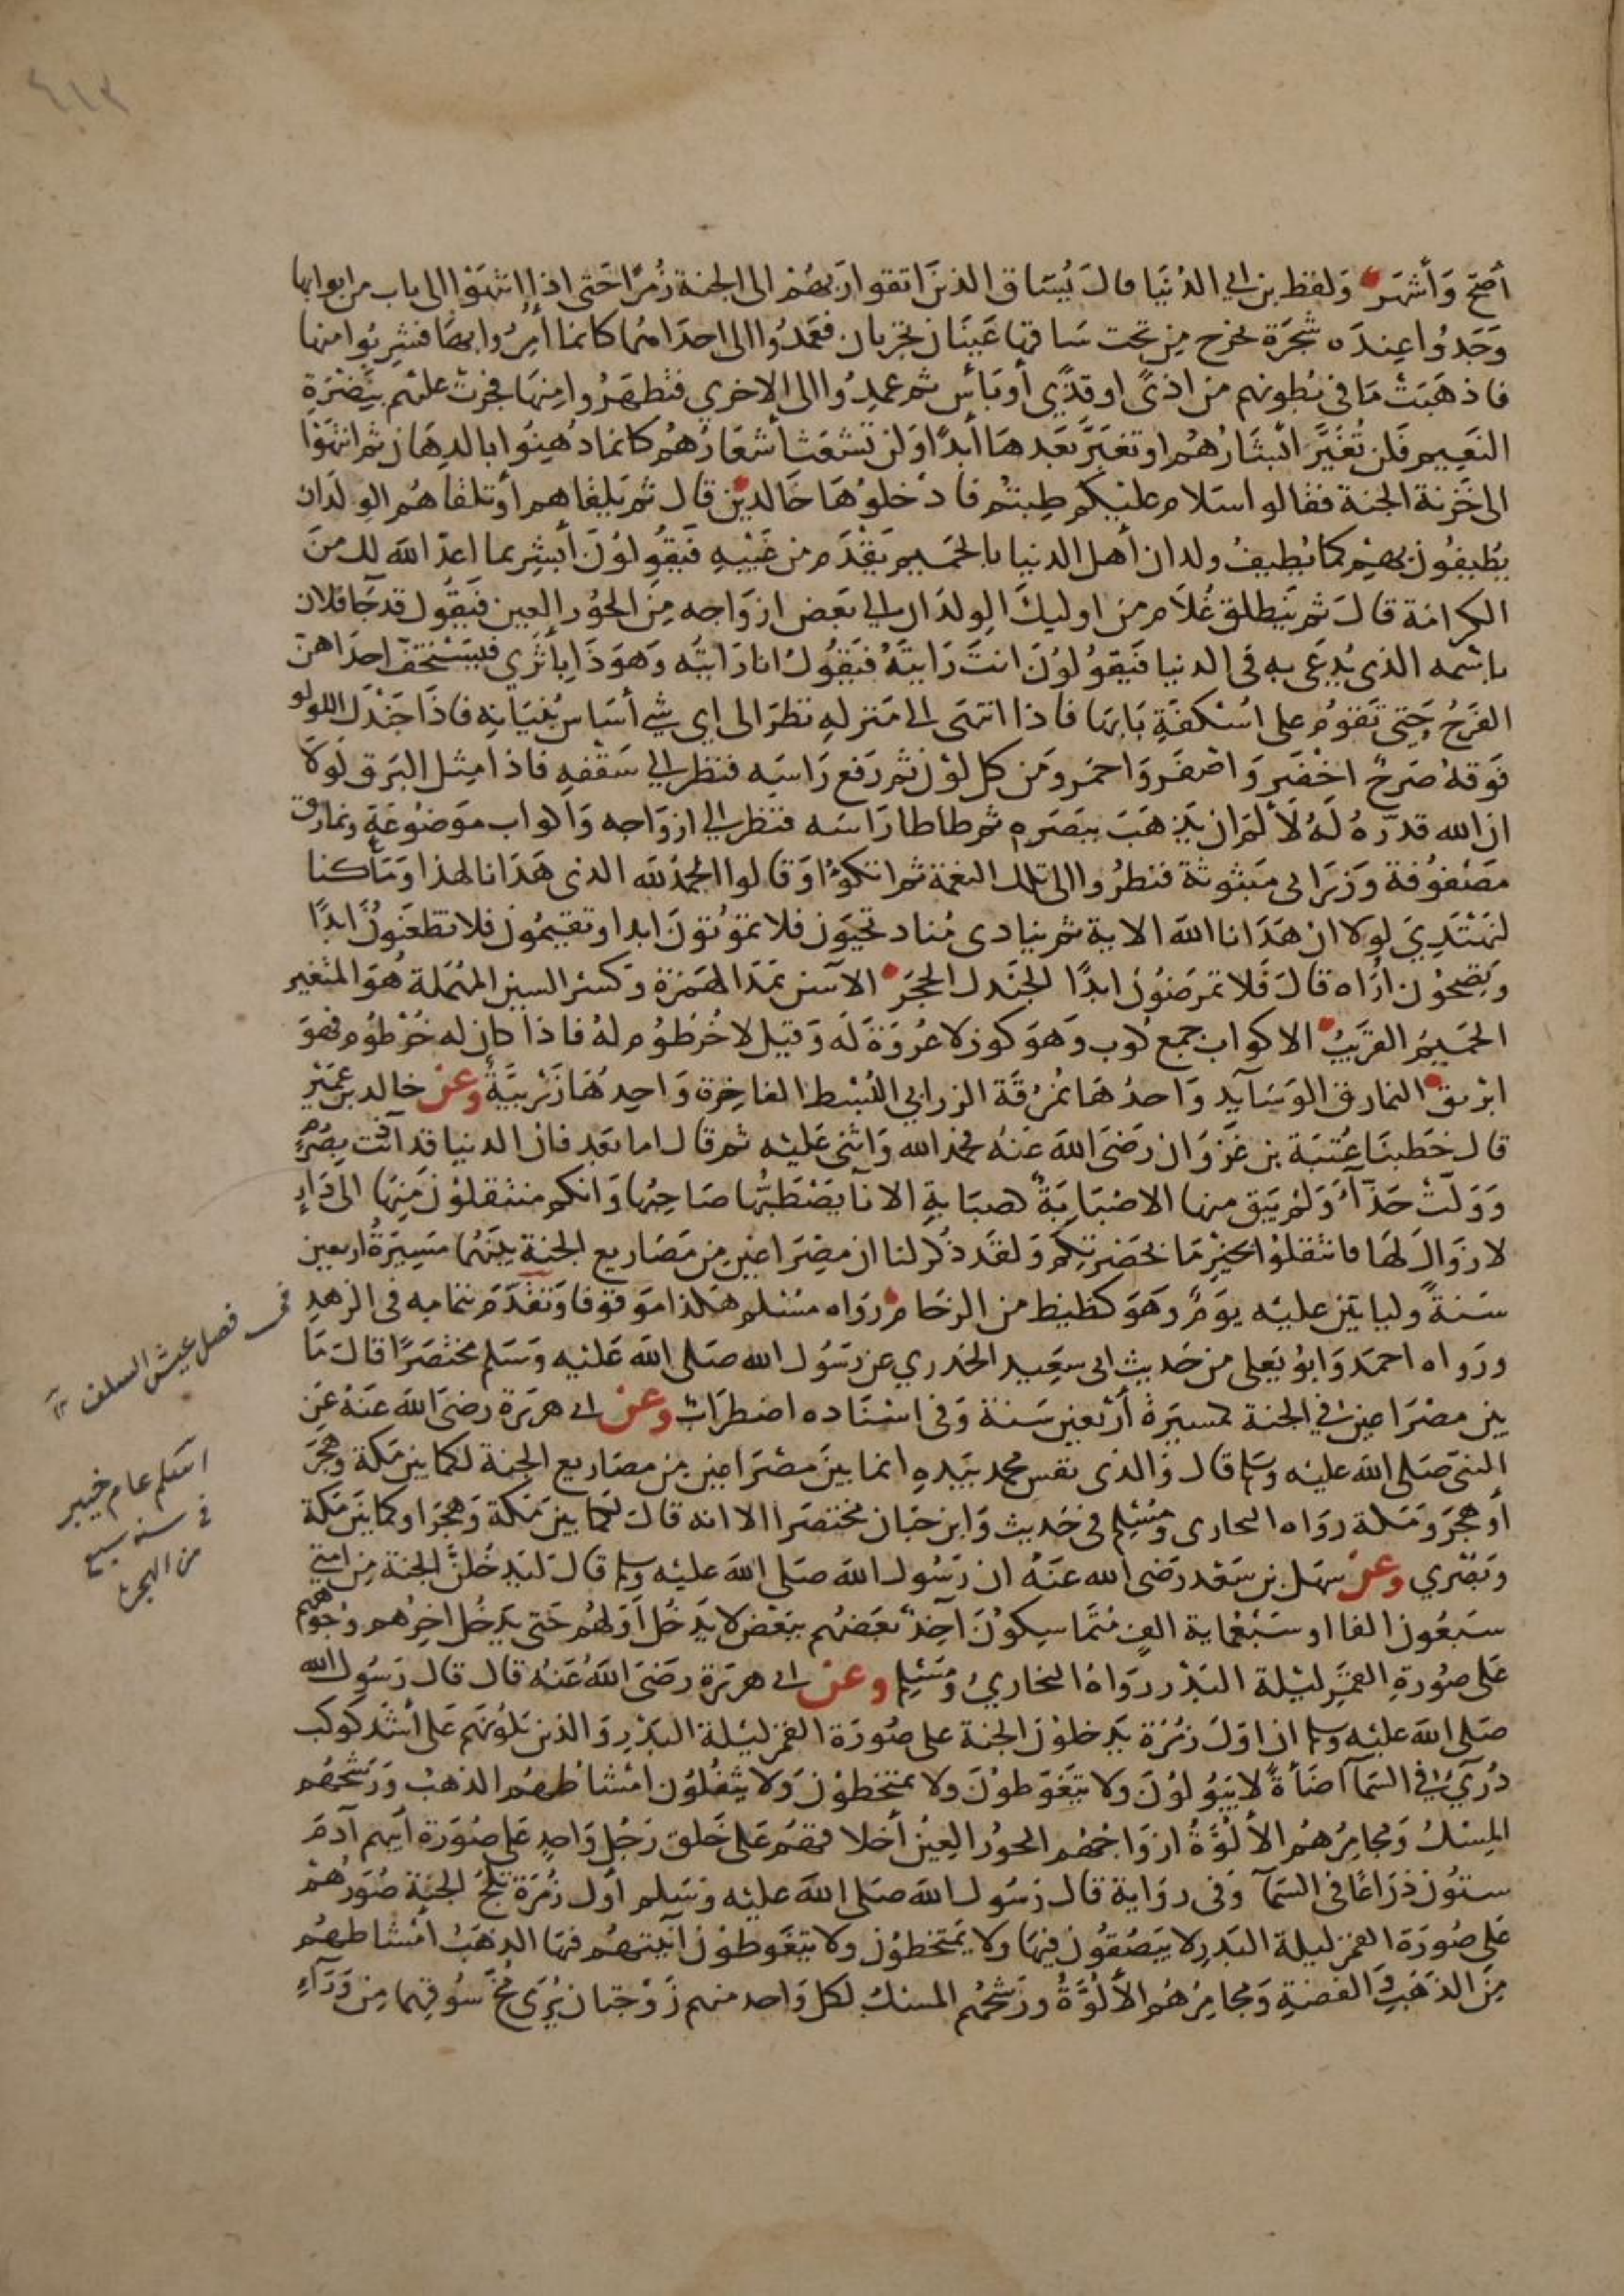 ٤١٣
أصح وَأشهَر وَلفظ بن ابي الدُنيَا قالَ يُسَاق الذينَ اتقوا ربَهُمْ الى الجنة زُمَرًا حَتى اذا انتهَوْا الى باب من ابوابها
وَجَدُوا عِندَه شجَرَة يخرج مِن تحت سَاقها عَينَان تجريان فعَمدُوا الى احدَاهما كانما أُمِرُوا بهَا فشرِبُوا منها
فاذهَبَتْ مَا في بُطونهم من اذىً او قذًي أو بَأس ثم عمدُوا الى الاخري فتطهَرُوا مِنهَا فجرتْ عليهم بِنَضْرَةِ
النعَيم فَلن تُغَيَّرَ ابْشَارُهُم او تغيَّرَ بَعدهَا أبدًا وَلن تشعَث أشعَارُهُم كانما دُهِنُوا بالدِهَان ثم انتهَوْا
الى خَزنة الجنة فقالوا سَلام عليْكم طِبتُم فادْخلوُهَا خَالدِين قال ثم يَلقاهم أو تلقاهُم الوِلدَان
يطُيفُون بهِم كما يُطِيف ولدان أهل الدنيا بالحَميم يَقْدَم من غَيْبَهِ فَيَقُولُونَ أَبشِر بما اعدّ الله لك مِنَ
الكرَامَة قالَ ثم ينَطلق غُلَام من اوليكَ الوِلدَان الي بَعض ازوَاجه مِنَ الحوُر العِين فَيَقُول قد جَا فلان
باسْمه الذي يُدعَى به في الدنيا فَيَقوُلوُنَ انتَ رَايتَهُ فَيَقوُلُ انا رَايتُه وَهوَ ذَا بأثَري فَيَسْتخفّ احدَاهنّ
الفَرحُ حَتى تَقوُمُ على اسْكُفَةِ بَابهَا فاذا انتهَى الى مَنزلهِ نظرَ الى اي شي أسَاس بُنيَانِه فَاذَا جَنْدَل اللولو
فَوقهُ صَرحٌ اخْضَر وَاصْفَر وَاحمَر ومَن كل لوْن ثم رَفع رَاسَه فنظر الي سَقْفِهِ فاذا مِثل البَرق لَولَا
ان الله قدّرَهُ لَهُ لَألَمَّ ان يَذهَبَ ببَصَرهِ ثم طاطا رَاسَه فنظر الي ازوَاجه وَاكواب مَوضُوعَة ونمارق
مَصْفوُفة وَزَرَابي مَبثوثة فنظرُوا الى تلك النعمة ثم اتكؤُا وَقالوا الحمدُ لله الذي هَدَانا لهذا وَمَا كنا
لنَهتَدِيَ لولا ان هَدَانا الله الاية ثم ينادي مُناد تحيَون فلا تموُتونَ ابدا وتقيمُون فلا تظعَنُون ابَدًا
وَتصِحُون ارَاه قالَ فَلا تمرَضُون ابدًا الجَندل الحجَر الآسن بمَدّ الهَمزة وَكسْر السين المهُمَلة هُوَ المتغير
الحَميمُ القريَبُ الاكواب جمع كوب وَهوَ كوز لا عُروَة لَه وَقيل لا خُرطُوم لهُ فاذا كان له خُرْطوُم فهوَ
ابريق النمارق الوسَايد وَاحدُهَا نمُرقَة الزرابي البُسْط الفاخِرة وَاحِدهَا زَرْبيَّة وعن خالد بن عُمَيْر
قال خَطبنَا عُتبَة بن غَزوَان رَضىَ الله عَنهُ فحمَد الله وَاثنى عَليْه ثم قال اما بَعد فان الدنيا قد آذنت بصُرْمٍ
وَوَلّتْ حَذّآءَ وَلمْ يَبق منها الا صُبَابَةٌ كصبَابةِ الانآ يَصْطَبّهَا صَاحِبُهَا وَانكم منتقلوُن مِنهَا الى دَارٍ
لا زوَالَ لهَا فانتقلوُا بخيْرِ مَا بحَضرتِكم وَلقَد ذُكر لنا ان مِصْرَاعَين مِن مَصَاريع الجنة بَينَهُما مَسِيرَةُ اربعين
سَنةً وليايتين عليْه يومٌ وَهوَ كظيظ من الزحَام رَوَاه مسْلم هكذا موقوفا وَتقدّمَ بتمامه في الزهد
ورَواه احمَد وَابوُ يَعلى من حَديث ابى سعَيد الخدري عن رَسُول الله صَلى الله عَليْه وَسَلم مختصَرًا قالَ مَا
بين مصْرَاعين في الجنة لمسيرَة أرْبعين سَنة وَفى اسْنَاده اضطرَابٌ وعن ابى هريَرة رضىَ الله عَنهُ عَنِ
النبى صَلى الله عليْه وسَلم قال وَالذي نفس محمد بيَدهِ ان ما بينَ مصْرَاعَين مِن مصَاريع الجنة لكما بين مَكة وهجَرَ
أو هجَر وَمَكة رَوَاه البخاري وَمُسْلم في حَديث وَابن حَبَان مختصَرا الا انه قالَ لَكما بينَ مَكة وَهجَرَ او كما بينَ مَكة
وَبصْري وعن سهل بن سَعْد رَضى الله عَنهُ ان رَسُول الله صَلى الله عليْه وسلم قالَ ليَدخُلنّ الجنة مِن امتي
سَبعُون الفا او سَبْعُماية الفٍ مُتمَاسِكوُنَ آخِذٌ بَعضهُم ببَعْض لا يَدخُل أَوّلهُم حَتى يَدخُل اخِرُهم وجُوهُهم
عَلى صوُرةِ القمَرِ ليْلة البَدْر رَوَاهُ البخاريُ وَمُسْلم وعن ابى هرَيرَة رضىَ اللهُ عَنهُ قال قال رَسُول الله
صَلى الله عليْه وسلم ان اوّلَ زمُرَة يَدخلوُن الجنة على صُورَة القمَر ليْلة البَدْرِ وَالذين يلوُنهم عَلى أشَدّ كوكب
دُرّيٍّ في السَمآ اضَأةً لا يَبُولوُنَ ولا يَتَغَوطوُنَ ولا يمتخطوُنَ وَلا يتْفُلُون امْشاطهُم الذهَبُ وَرَشحُهُم
المِسْكُ وَمجامِرُهمُ الأَلُوّةُ ازوَاجهُم الحوُر العِينُ أخلاقهُم عَلى خَلق رَجُل وَاحِدٍ عَلى صُورَة ابيهم آدمَ
ستوُن ذرَاعًا في السَمآ وَفى روَاية قال رَسُول الله صَلى الله عليْه وَسَلم أوّل زمُرَة تَلجُ الجَنة صُوَرُهُمْ
عَلى صُورَة القمَر ليلة البَدرِ لا يَبصُقوُن فِيهَا ولا يَمتَخطوُن ولا يتَغَوطوُن آنيَتهُم فيهَا الذهَبُ امْشاطهُم
مِنَ الذهَبِ وَالفضةِ وَمجامِرُهُم الأَلُوّةُ ورَشحُهُم المسْكُ لكل وَاحد منهم زَوْجتان يُرَى مُخّ سُوقهِما مِن وَرَآءِ
في فصل عيش السلف
اسلم عام خيبر
في سنه سبع
من الهجرة